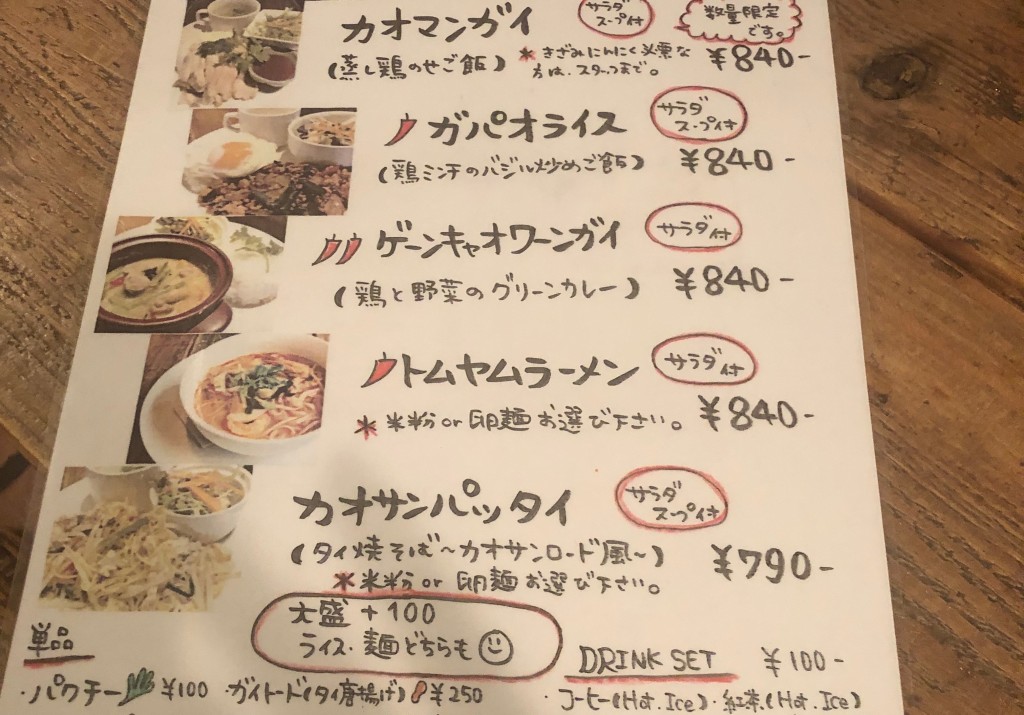 カオマンガイ
サラダ
スープ付
数量限定
です。
(蒸し鶏のせご飯)
* きざみにんにく必要な
方は、スタッフまで。
¥840-
ガパオライス
サラダ
スープ付
(鶏ミンチのバジル炒めご飯)
¥840-
ゲーンキャオワーンガイ
サラダ付
(鶏と野菜のグリーンカレー)
¥840-
トムヤムラーメン
サラダ付
* 米粉 or 卵麺お選び下さい。
¥840-
カオサンパッタイ
サラダ
スープ付
(タイ焼そば~カオサンロード風~)
¥790-
* 米粉 or 卵麺お選び下さい。
大盛 + 100
ライス・麺どちらも
単品
・パクチー ¥100 ・ガイトード(タイ唐揚げ) ¥250
DRINK SET ¥100-
・コーヒー(Hot. Ice)・紅茶.(Hot. Ice)